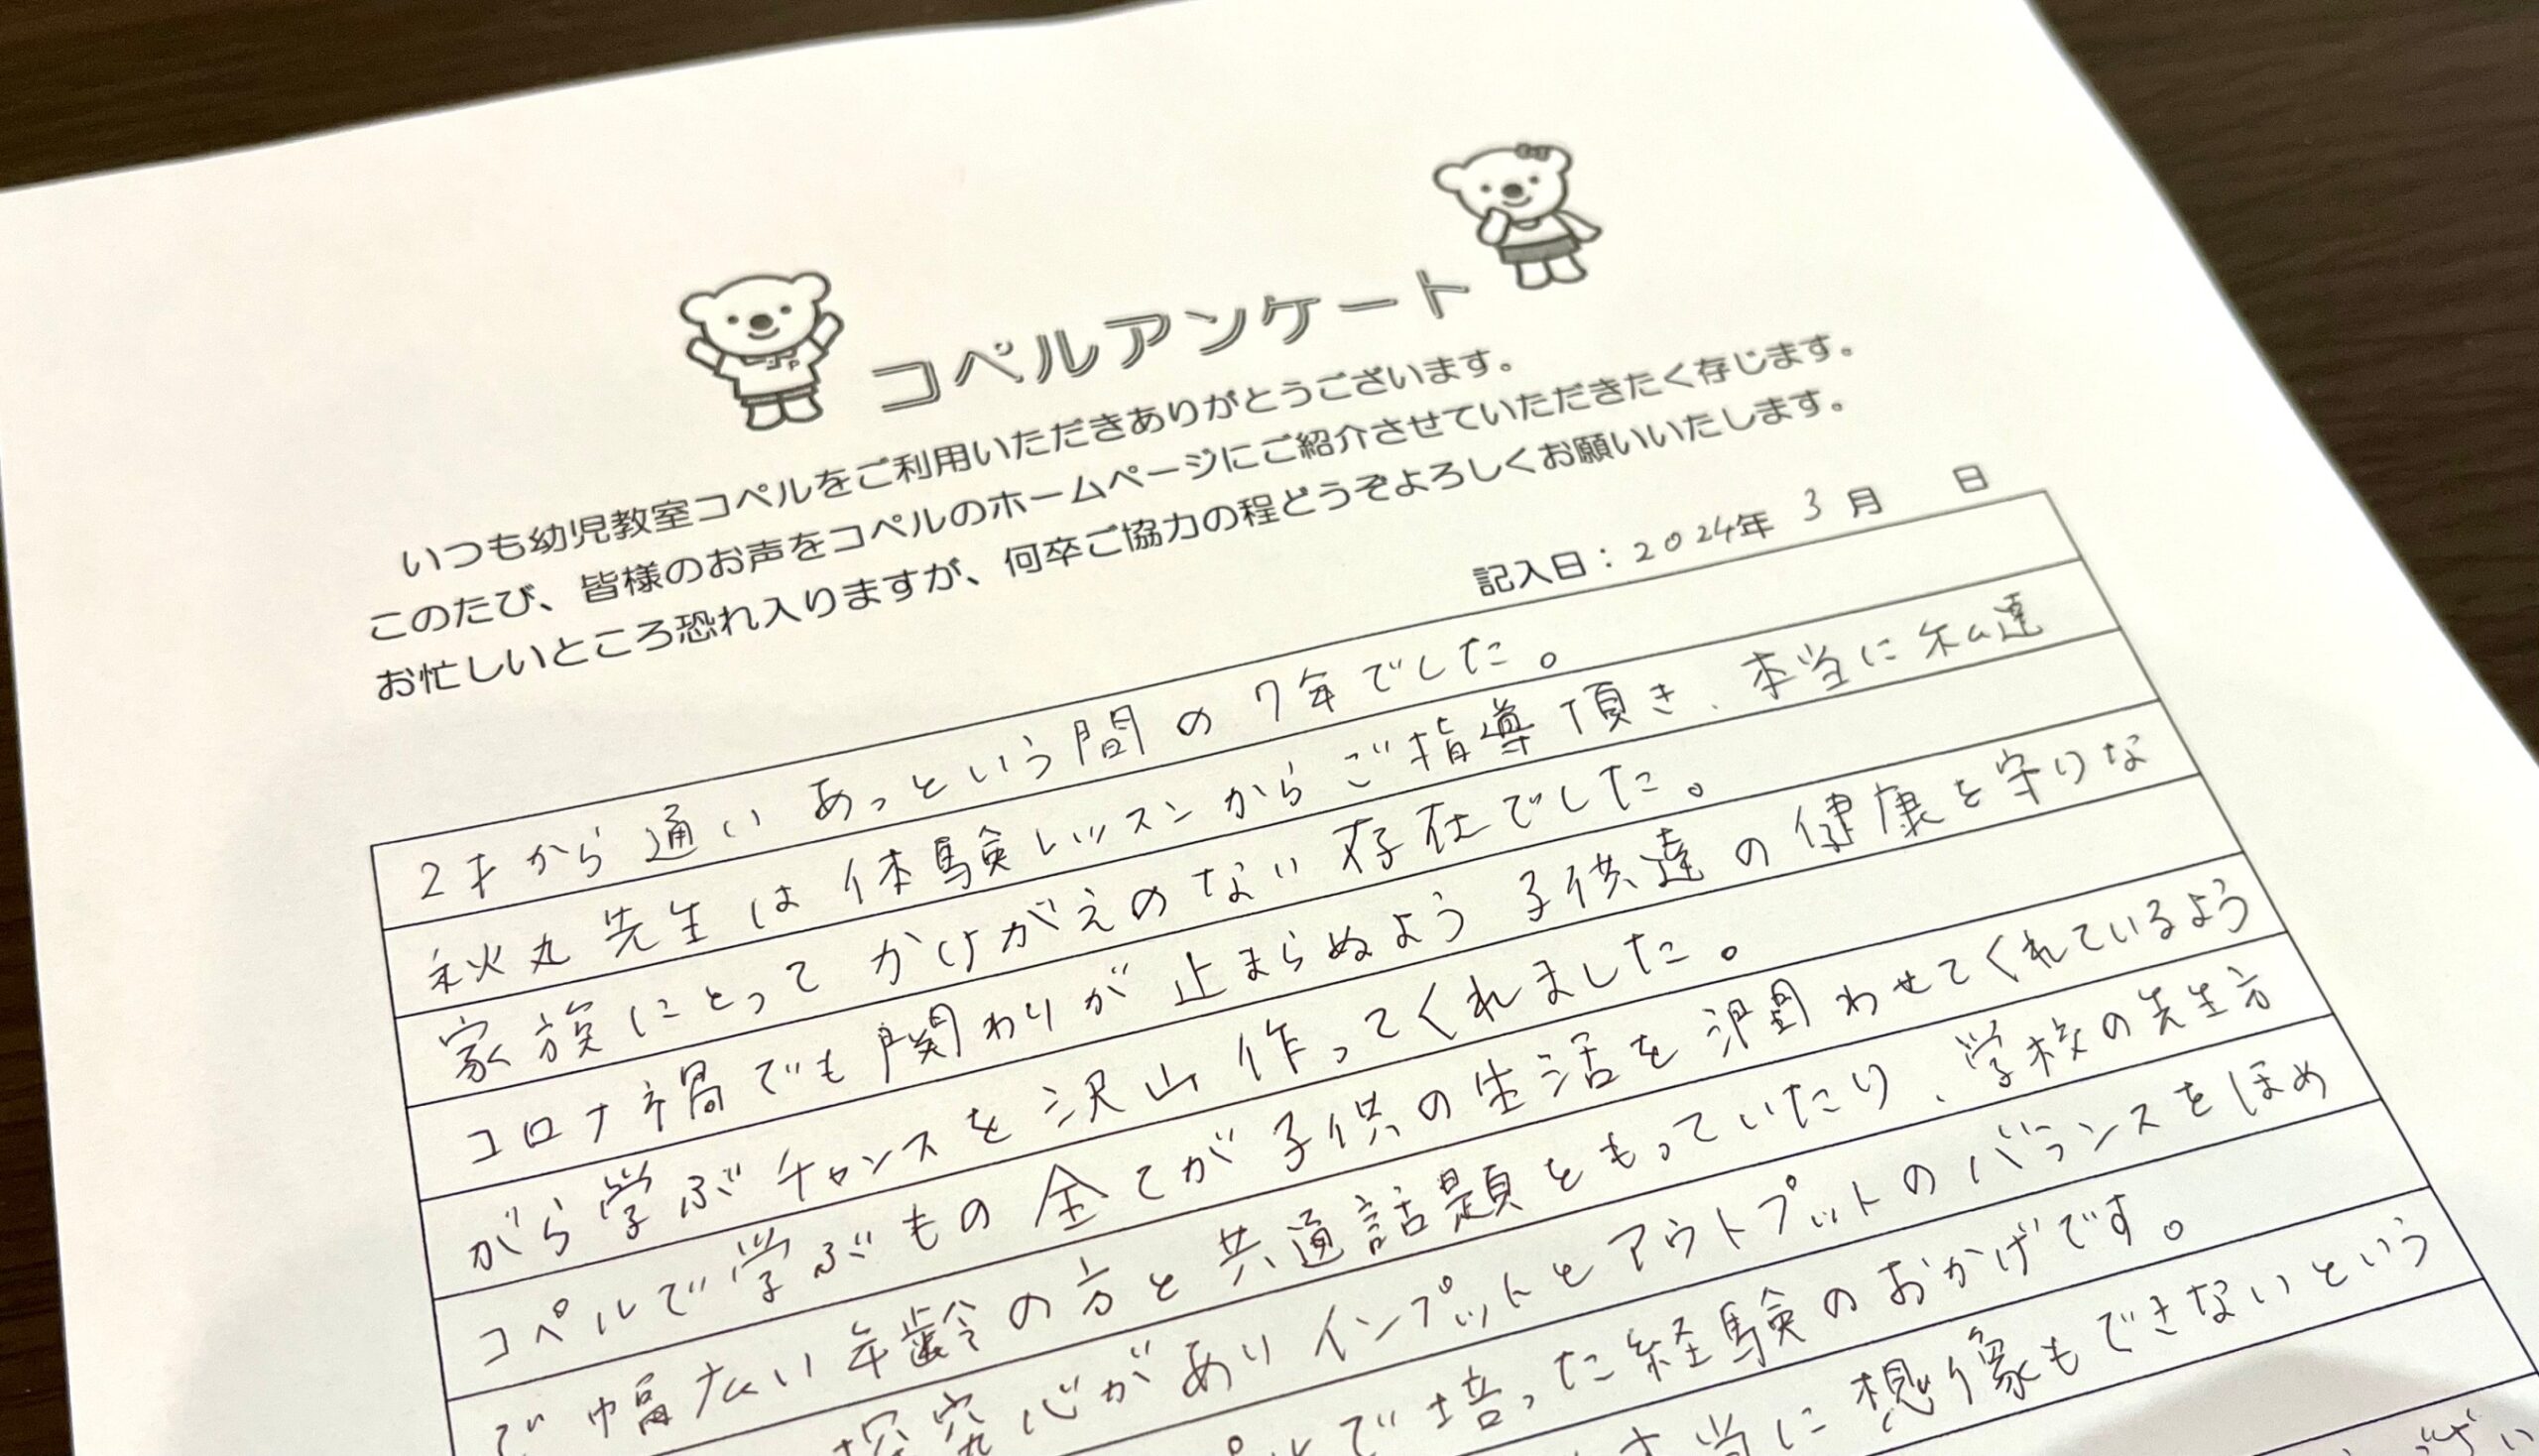 コペルアンケート
いつも幼児教室コペルをご利用いただきありがとうございます。
このたび、皆様のお声をコペルのホームページにご紹介させていただきたく存じます。
お忙しいところ恐れ入りますが、何卒ご協力の程どうぞよろしくお願いいたします。
記入日：2024年 3月 日
2才から通い あっという間の7年でした。
秋丸先生は体験レッスンからご指導頂き、本当に私達
家族にとってかけがえのない存在でした。
コロナ禍でも関わりが止まらぬよう子供達の健康を守りな
がら学ぶチャンスを沢山作ってくれました。
コペルで学ぶもの全てが子供の生活を潤わせてくれているよう
で幅広い年齢の方と共通話題をもっていたり、学校の先生方
探究心がありインプットとアウトプットのバランスをほめ
ルで培った経験のおかげです。
本当に想像もできないという